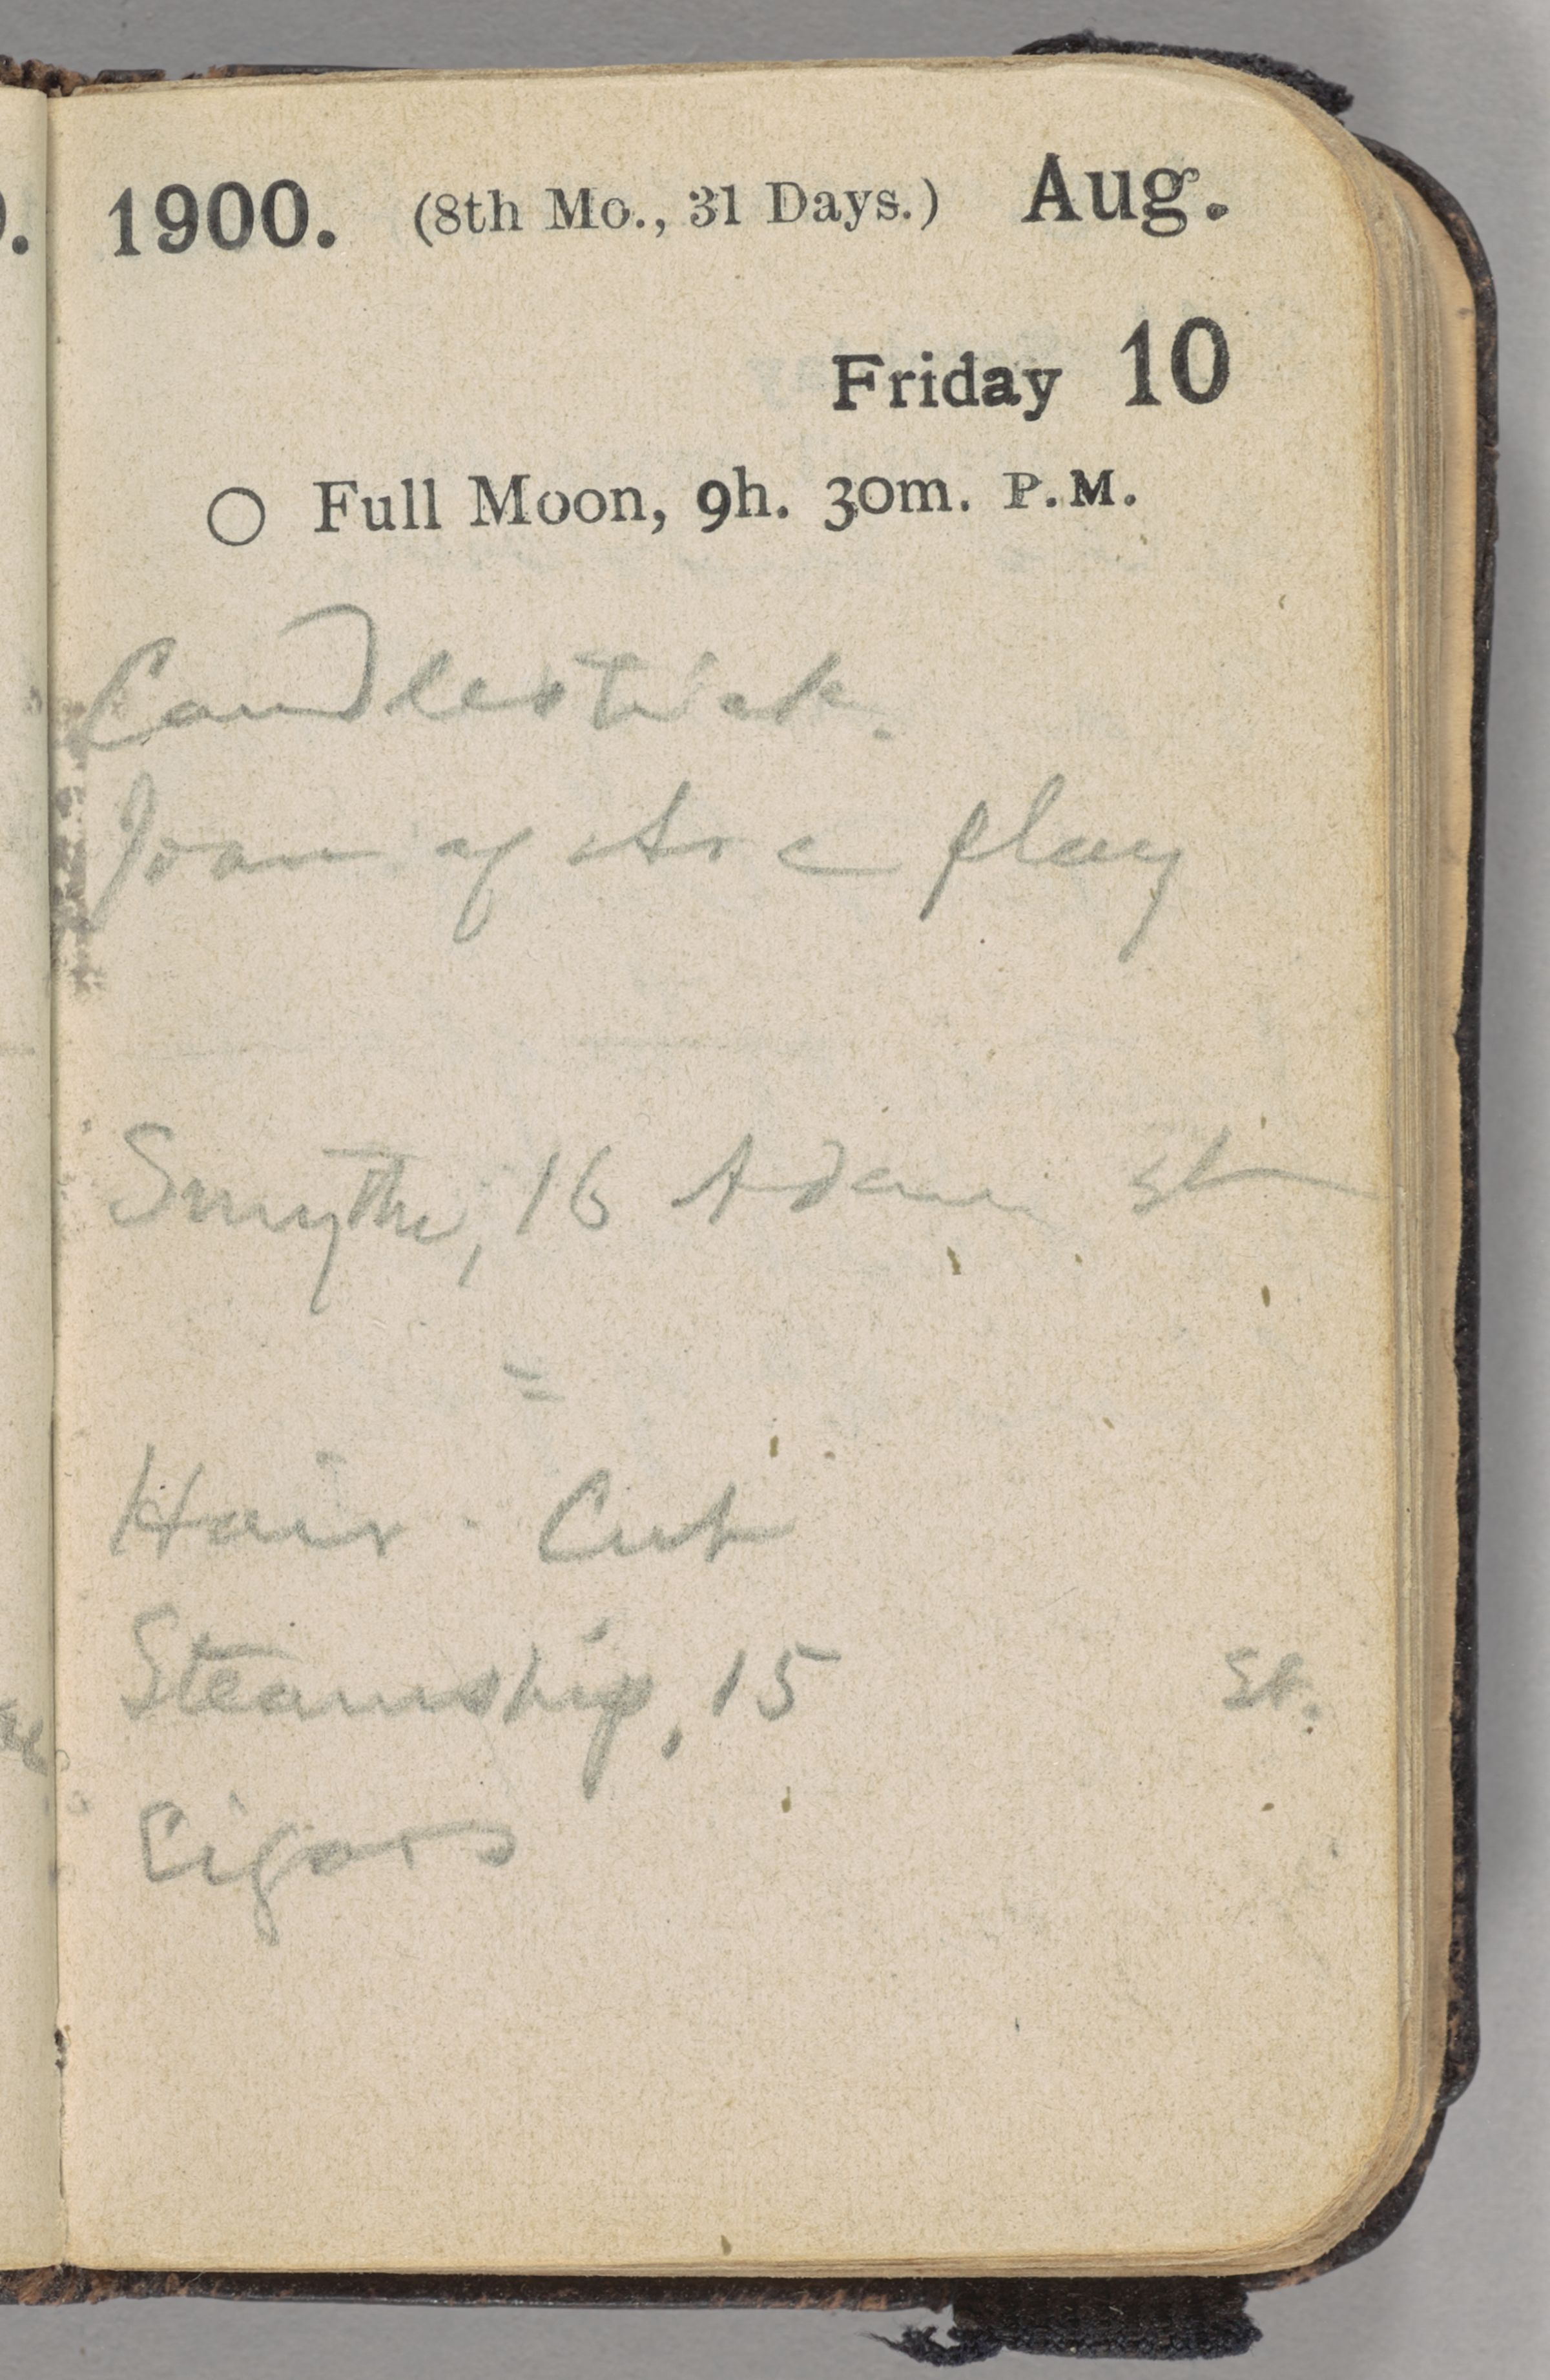 1900. (8th Mo., 31 Days.) Aug.
Friday 10
○ Full Moon, 9h. 30m. P.M.
Candlestick.
Joan of Arc play
Smythe, 16 Adam St
=
Hair-Cut
Steamship, 15 St.
Cigars